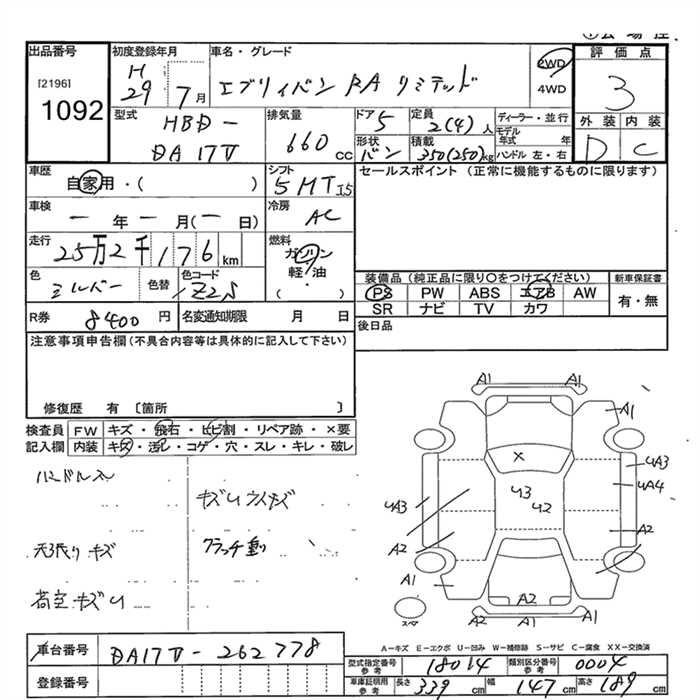 出品番号
[2196]
1092
初度登録年月
H
29 7月
車名・グレード
エブリィバン PA リミテッド
2WD
4WD
評価点
3
型式
HBD-
DA17V
排気量
660 cc
ドア
5
定員
2(4)人
ディーラー・並行
モデル年式 年
形状
バン
積載
350(250)kg
ハンドル 左・右
外装 内装
D C
車歴
自家用・( )
シフト
5MT I5
セールスポイント (正常に機能するものに限ります)
車検
ー年ー月(ー日)
冷房
AC
走行
25万2千176km
燃料
ガソリン
軽油
・
( )
色
シルバー
色替
色コード
Z2S
装備品(純正品に限り○をつけてください)
PS PW ABS エアB AW
SR ナビ TV カワ
新車保証書
有・無
R券 8400円
名変通知期限 月 日
後日品
注意事項申告欄(不具合内容等は具体的に記入して下さい)
修復歴 有 〔箇所 〕
検査員
記入欄
FW キズ・飛石・ヒビ割・リペア跡・×要
内装 キズ・汚レ・コゲ・穴・スレ・キレ・破レ
ハンドルス
キズUライナズ
天張りキズ
クラッチ重り
荷室キズU
A1
A1
A1
×
U3
U2
UA3
UA4
UA3
A2
A2
A1
A2
A1
A1
A1
スペア
A-キズ E-エクボ U-凹み W-補修跡 S-サビ C-腐食 XX-交換済
車台番号 DA17V-262778
登録番号
型式指定番号 参考 18014
類別区分番号 参考 0004
車庫証明用 参考 長さ 339cm 幅 147cm 高さ 189cm